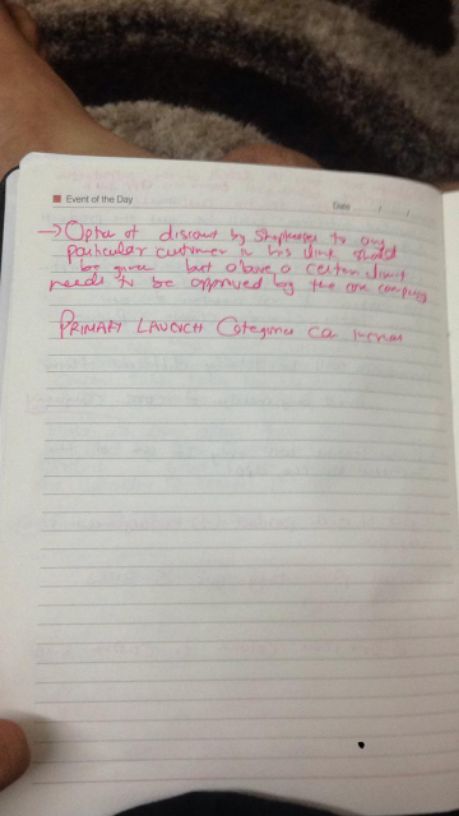 Event of the Day
Date / /
→ Option of discount by Shopkeeper to any
particular customer in his link should
be given but above a certain limit
needs to be approved by the core company
PRIMARY LAUNCH Categories can